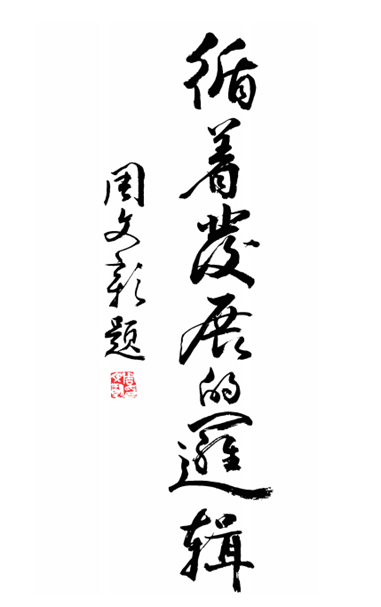 循着發展的邏辑
周文彰題